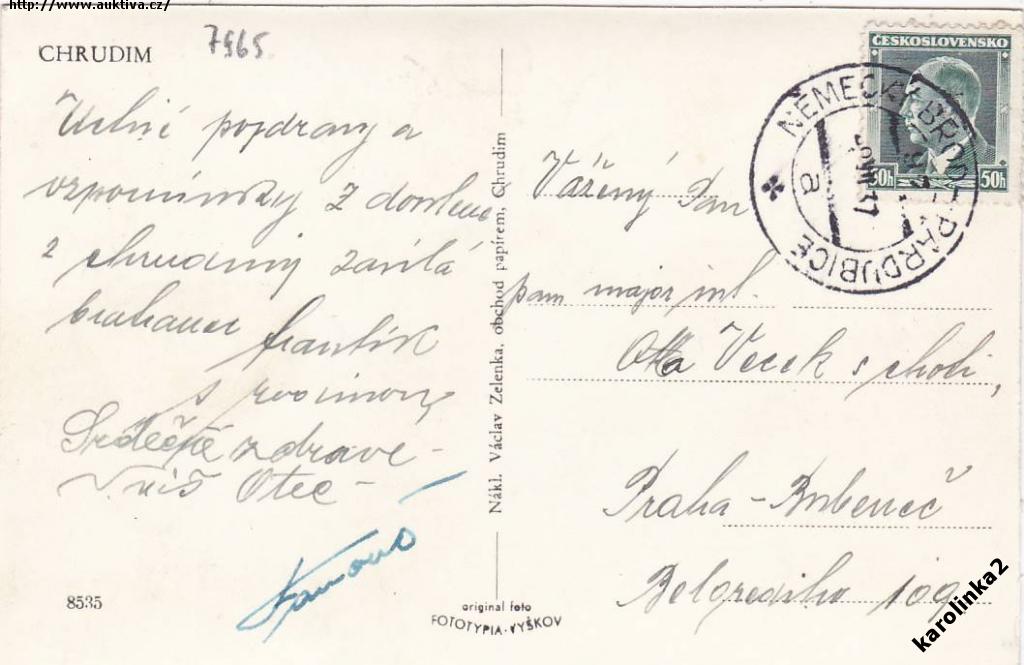 http://www.auktiva.cz/
7565
CHRUDIM
pozdravy a
vzpomínky z
z Chrudimy zasílá
František
s rodinou
Srdečně zdraví
Váš Otec
8535
Nákl. Václav Zelenka, obchod papírem, Chrudim
original foto
FOTOTYPIA-VYŠKOV
ČESKOSLOVENSKO
50h 50h
NĚMECKÝ BROD-PARDUBICE
a
Vážený Pan
pan major int.
Otta Vecek s chotí,
Praha-Bubeneč
Belcrediho 109
karolinka2